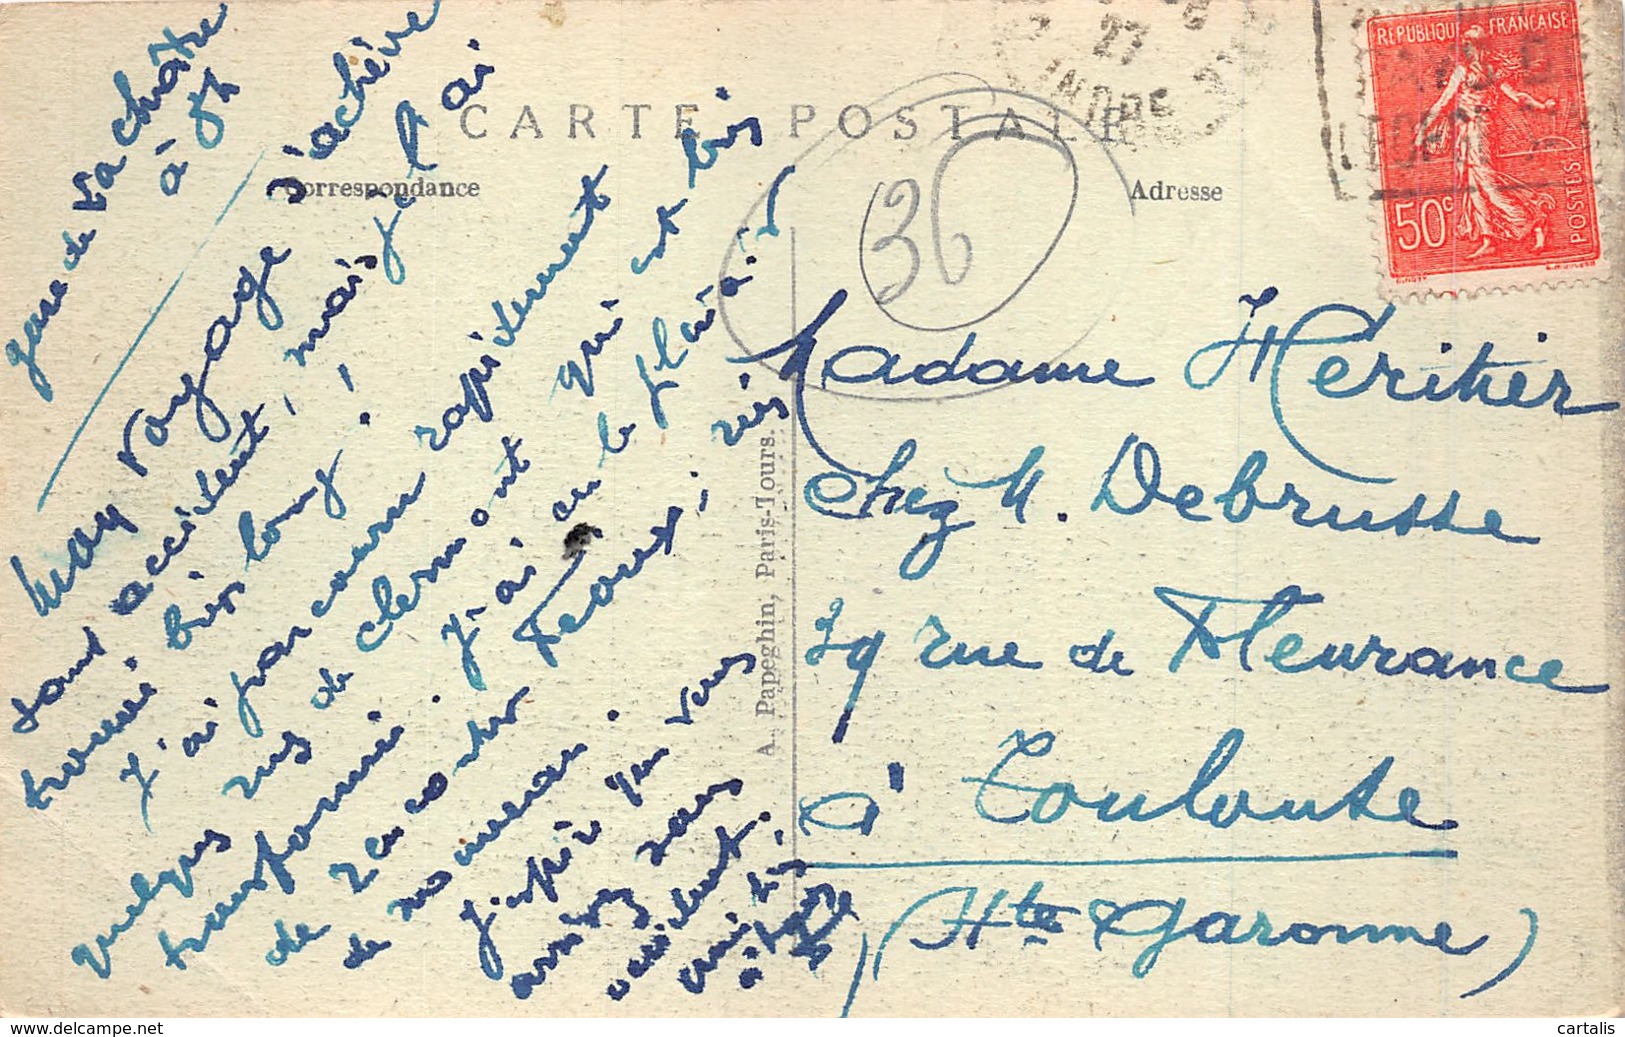 CARTE POSTALE
Correspondance
Adresse
gare de La Châtre
à 9h
Mon voyage s'achève
sans accident, mais je l'ai
trouvé bien long !
J'ai parcouru rapidement
quelques rues de Clermont qui est bien
transformé. J'ai eu le plaisir
de rencontrer
de nouveau.
J'espère que vous
arrivez sans
accident.
Amitiés
à tous
A. Papeghin, Paris-Tours.
36
27
INDRE
REPUBLIQUE FRANÇAISE
50c
POSTES
Madame Héritier
chez M. Debrusse
39 rue de Fleurance
à Toulouse
(Hte Garonne)
www.delcampe.net
cartalis